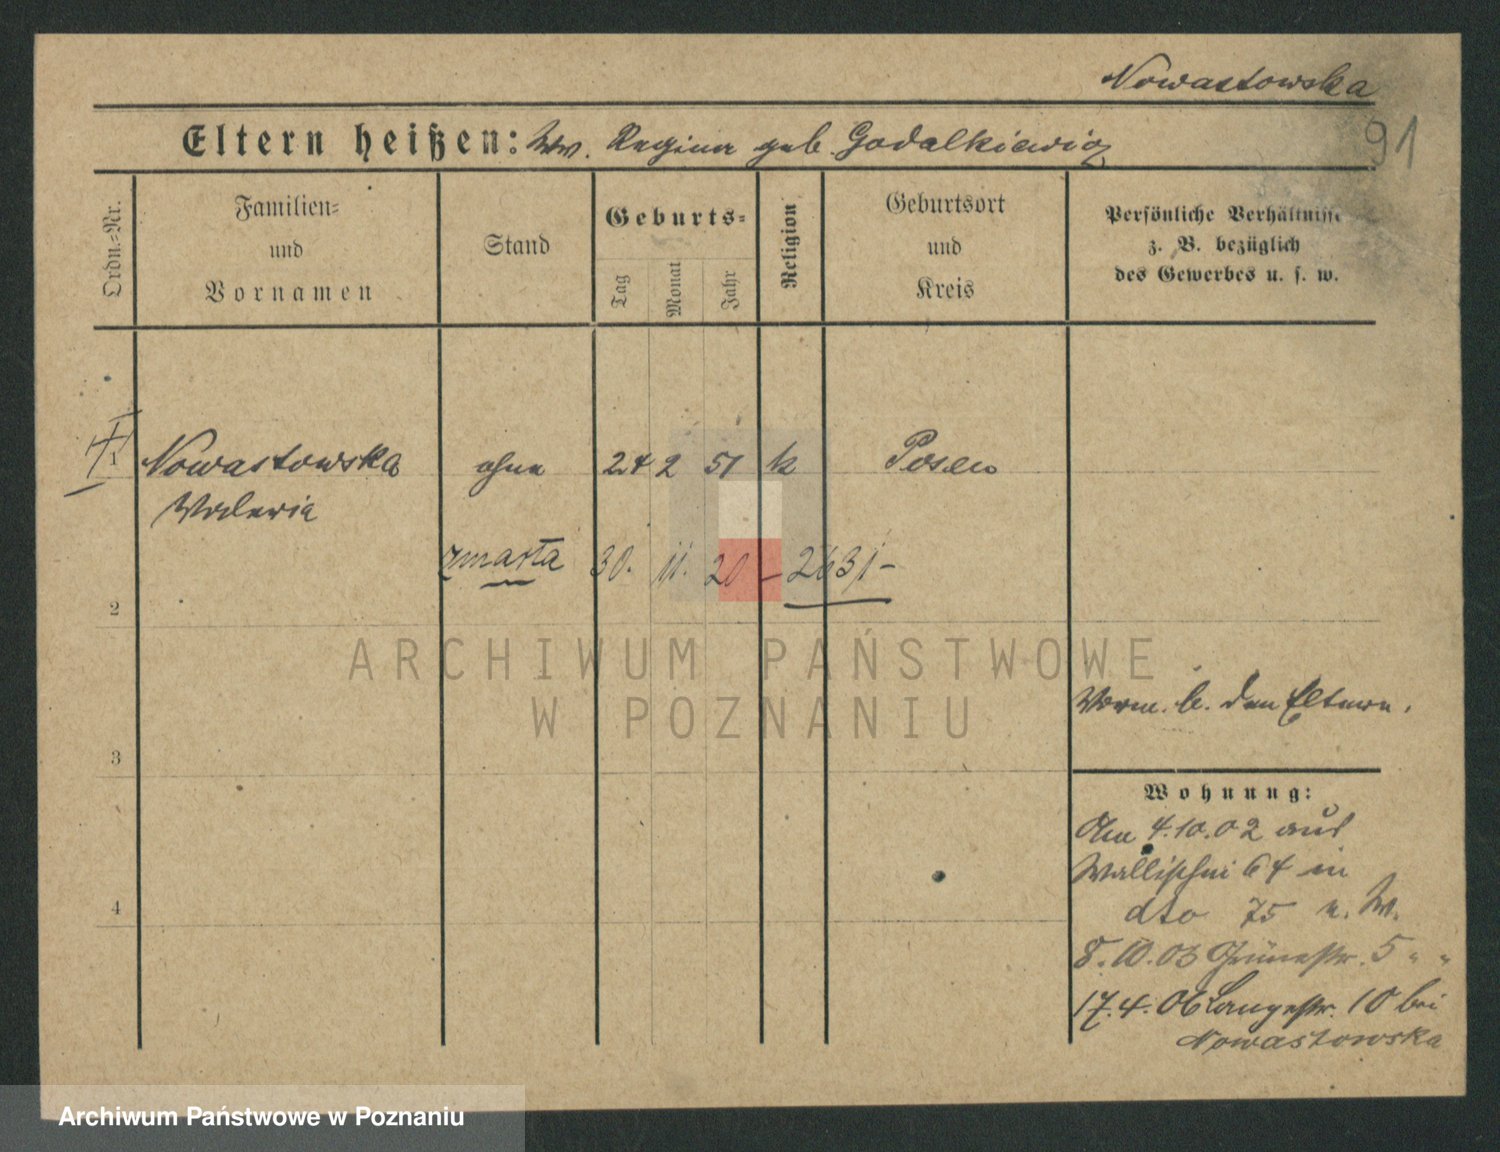 Nowastowska
Eltern heißen: Ww. Regina geb. Godalkiewicz
91
Ordn.=Nr.
Familien=
und
Vornamen
Stand
Geburts=
Tag
Monat
Jahr
Religion
Geburtsort
und
Kreis
Persönliche Verhältnisse
z. B. bezüglich
des Gewerbes u. s. w.
1 Nowastowska ohne 24 2 51 k Posen
Valeria
zmarła 30. 11. 20 – 2631 –
2
ARCHIWUM PAŃSTWOWE
W POZNANIU
Vorm. b. den Eltern.
3
Wohnung:
Am 4.10.02 aus
Wallischei 64 in
4
dto 75 u. W.
8.10.03 Grünestr. 5 " "
17.4.06 Langestr. 10 bei
Nowastowska
Archiwum Państwowe w Poznaniu